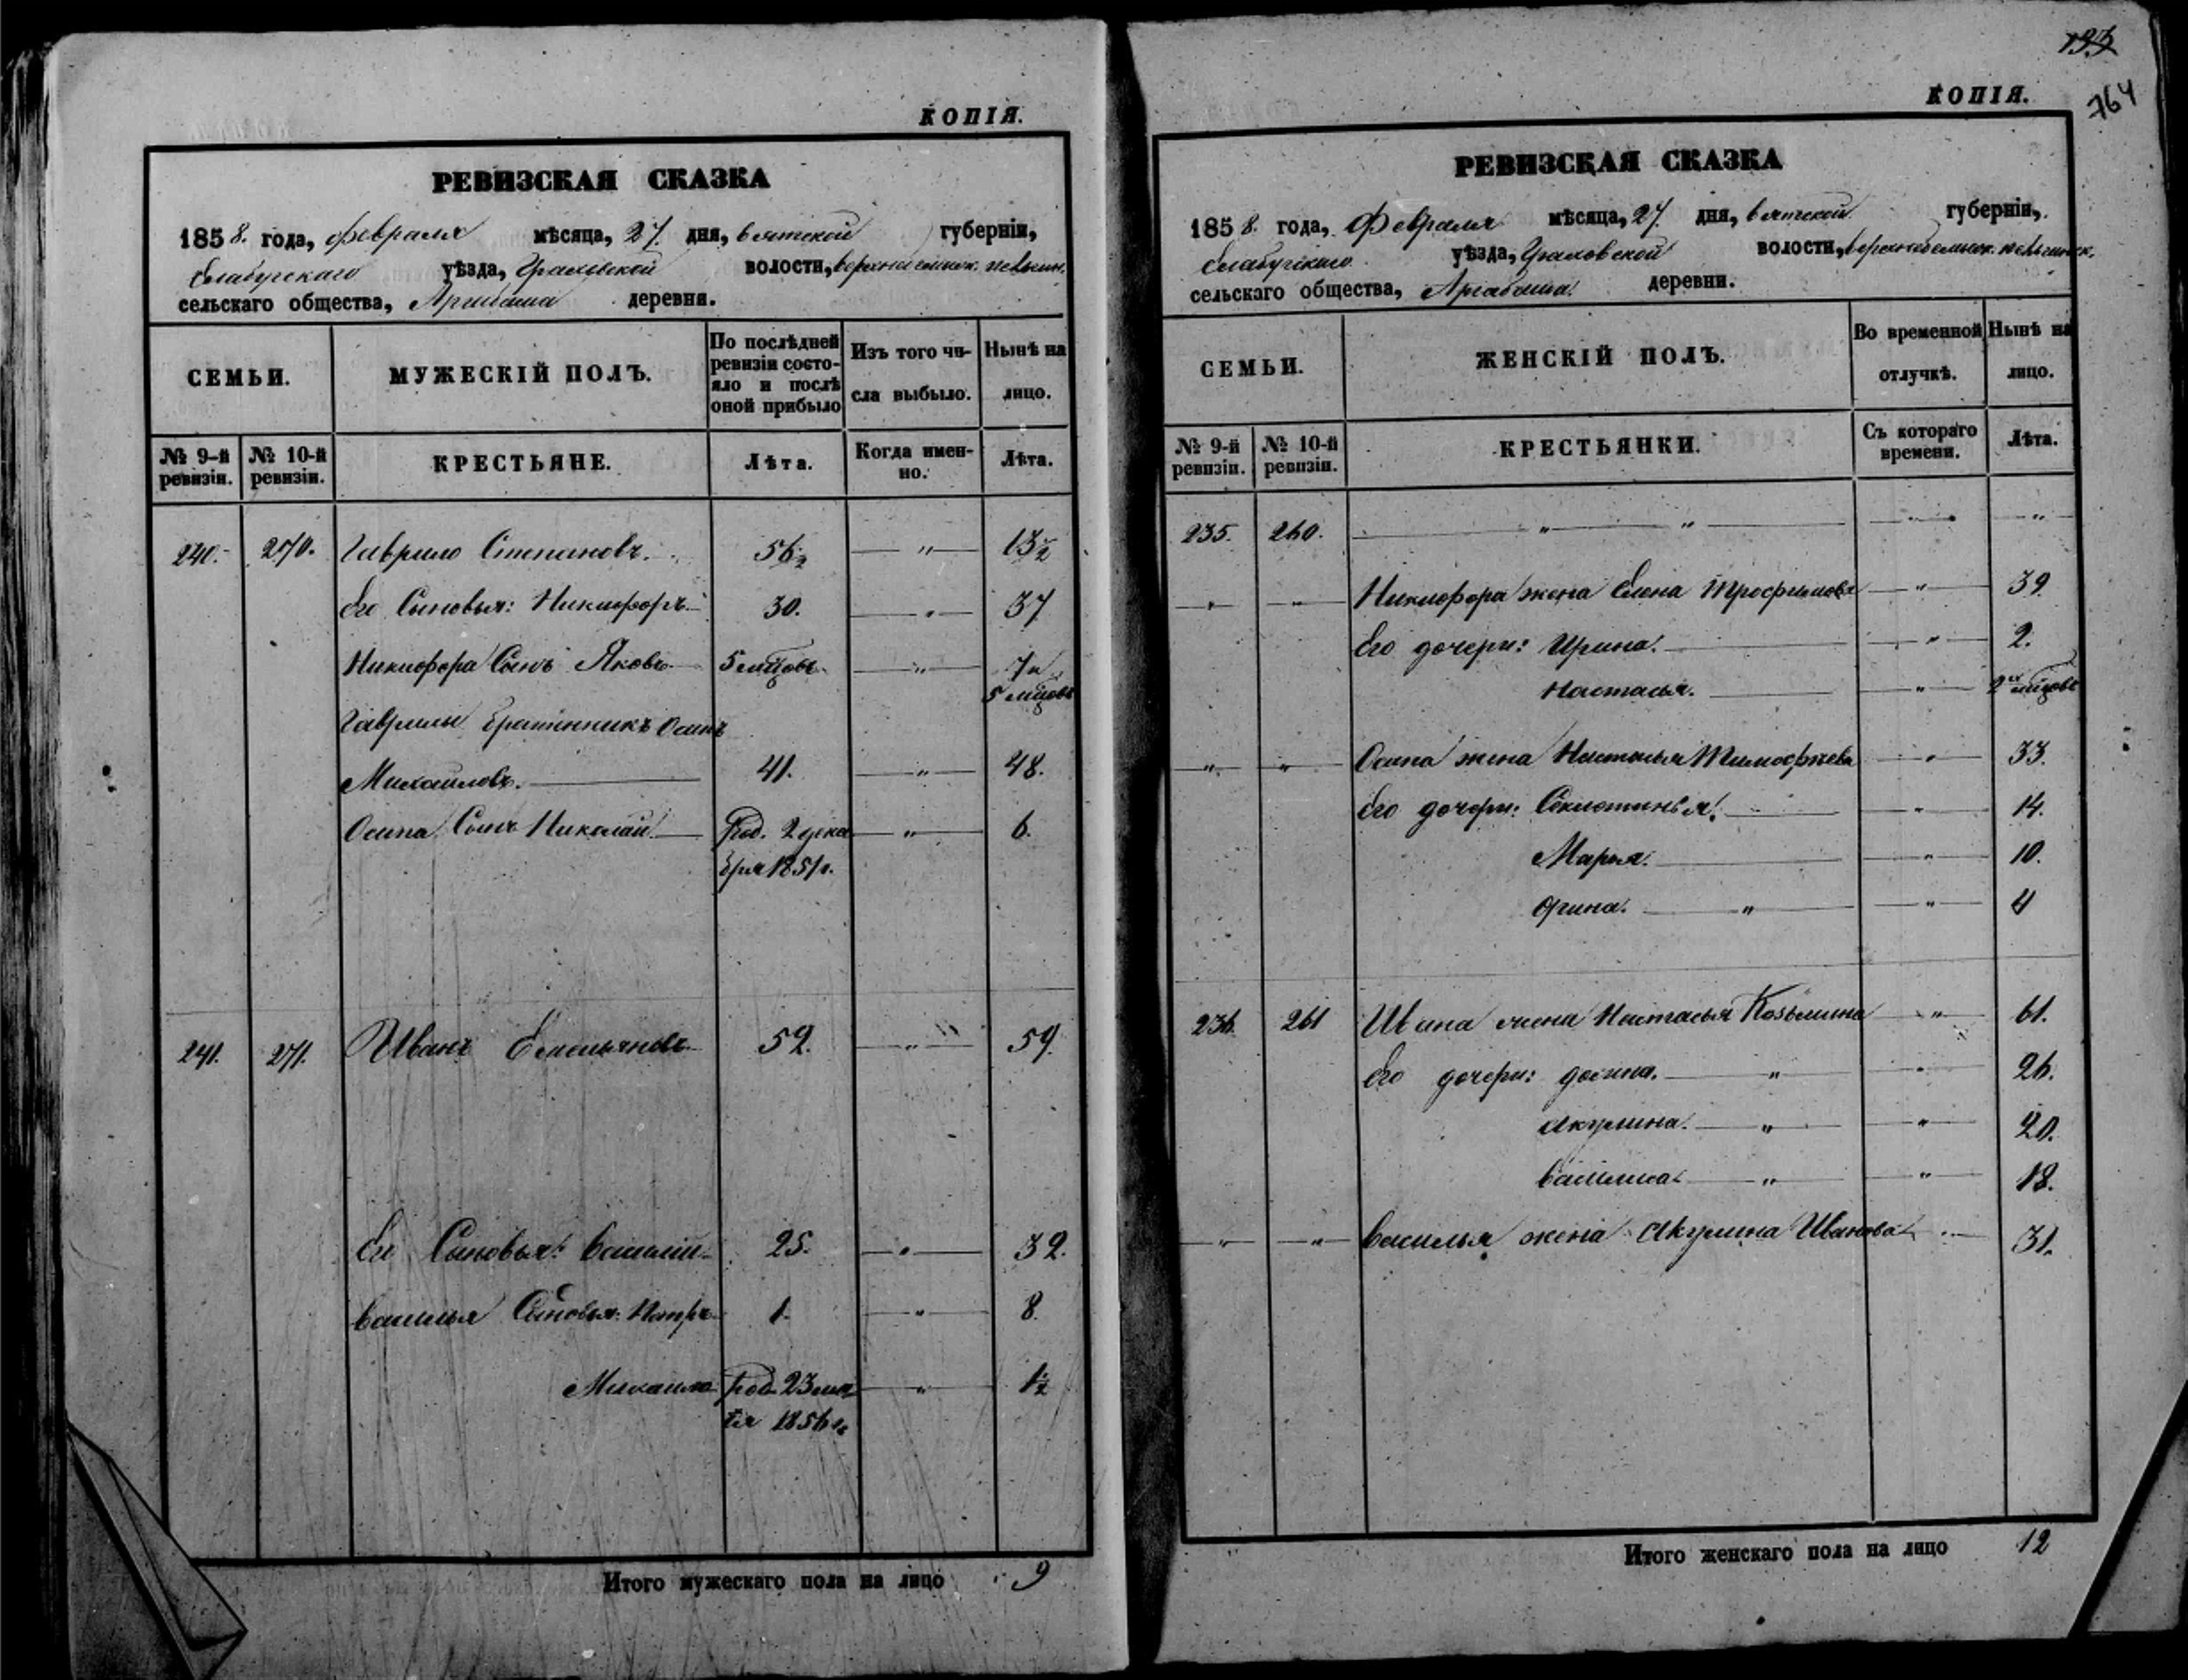 КОПІЯ.
РЕВИЗСКАЯ СКАЗКА
1858. года, февраля мѣсяца, 27. дня, вятской губерніи,
Елабугскаго уѣзда, Граховской волости,
сельскаго общества, деревня.
СЕМЬИ.
МУЖЕСКІЙ ПОЛЪ.
По послѣдней ревизіи состояло и послѣ оной прибыло
Изъ того числа выбыло.
Нынѣ на лицо.
№ 9-й ревизіи.
№ 10-й ревизіи.
КРЕСТЬЯНЕ.
Лѣта.
Когда именно.
Лѣта.
240. 270. Гаврило Степановъ.
Его Сыновья: Никифоръ 30. " 37
Никифора Сынъ Яковъ 5 мцовъ " 7 и
5 мцовъ
Гаврилы братанникъ Осипъ
Михайловъ. 41. " 48.
Осипа Сынъ Николай Род. 2 дека " 6.
бря 1851 г.
241. 271. Иванъ Емельяновъ 52. " 59.
Его Сыновья: Василій 25. " 32.
Василья Сыновья: Петръ 1. " 8
Михаило Род. 23 "
1856 г.
Итого мужескаго пола на лицо 9
764
КОПІЯ.
РЕВИЗСКАЯ СКАЗКА
1858. года, Февраля мѣсяца, 27. дня, вятской губерніи,
Елабугскаго уѣзда, Граховской волости,
сельскаго общества, деревни.
СЕМЬИ.
ЖЕНСКІЙ ПОЛЪ.
Во временной отлучкѣ.
Нынѣ на лицо.
№ 9-й ревизіи.
№ 10-й ревизіи.
КРЕСТЬЯНКИ.
Съ котораго времени.
Лѣта.
235. 260. " " " "
" " Никифора жена Елена Трофимова " 39.
Его дочери: Ирина. " 2.
Настасья. " 2 мцовъ
" " Осипа жена Настасья Тимофѣева " 33.
Его дочери: Секлетинья. " 14.
Марья. " 10.
Орина. " " 4
236. 261 Ивана жена Настасья Козьмина " 61.
Его дочери: " " 26.
Акулина. " " 20.
Василиса " " 18.
" " Василья жена Акулина Иванова " 31.
Итого женскаго пола на лицо 12